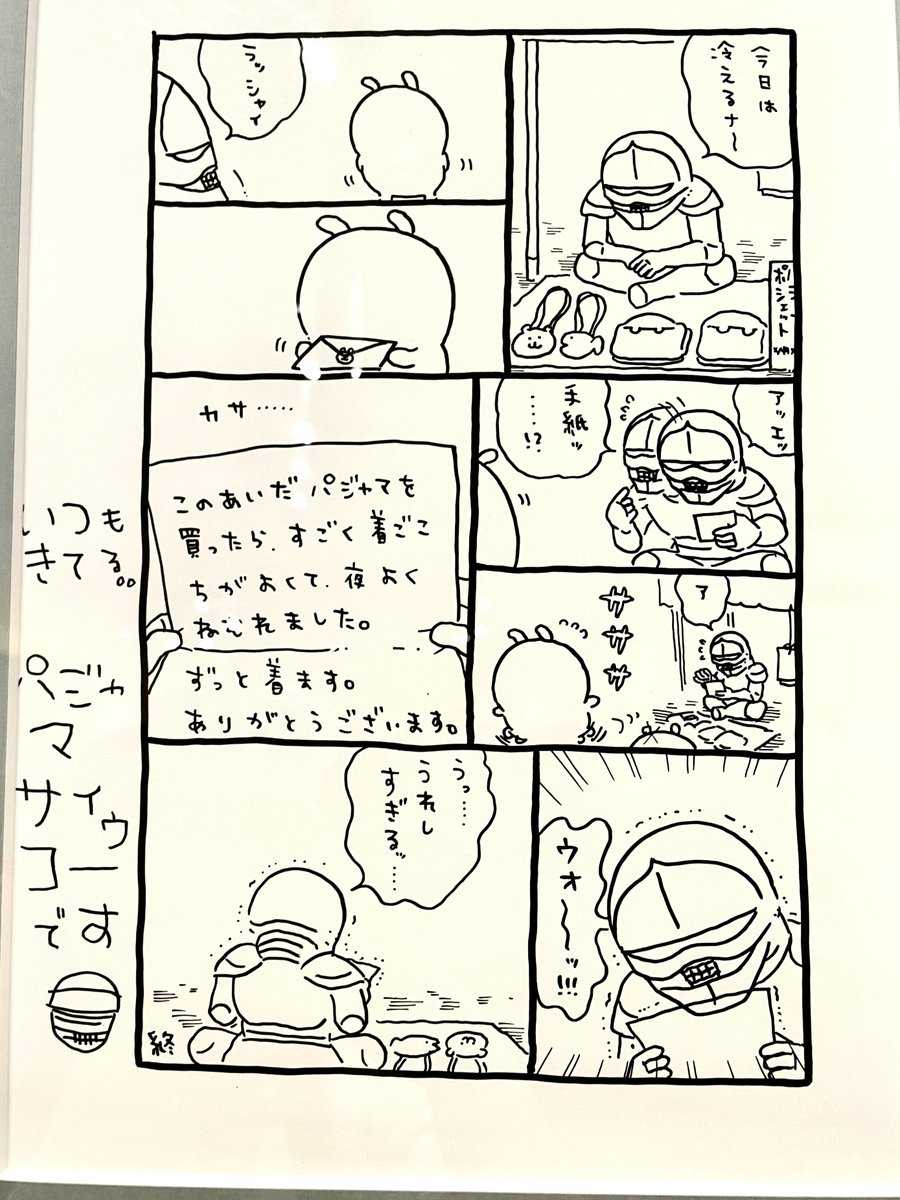 今日は
冷えるナ〜
ポシェット
ラッシャイ
アッエッ
手紙ッ
……!?
ア
サササ
カサ……
このあいだ パジャマを
買ったら、すごく着ごこ
ちがよくて、夜よく
ねむれました。
ずっと着ます。
ありがとうございます。
ウオ〜ッ!!!
うっ…
うれし
すぎるッ……
終
いつも
きてる。。
パジャ
マ
サイウ
コーす
で